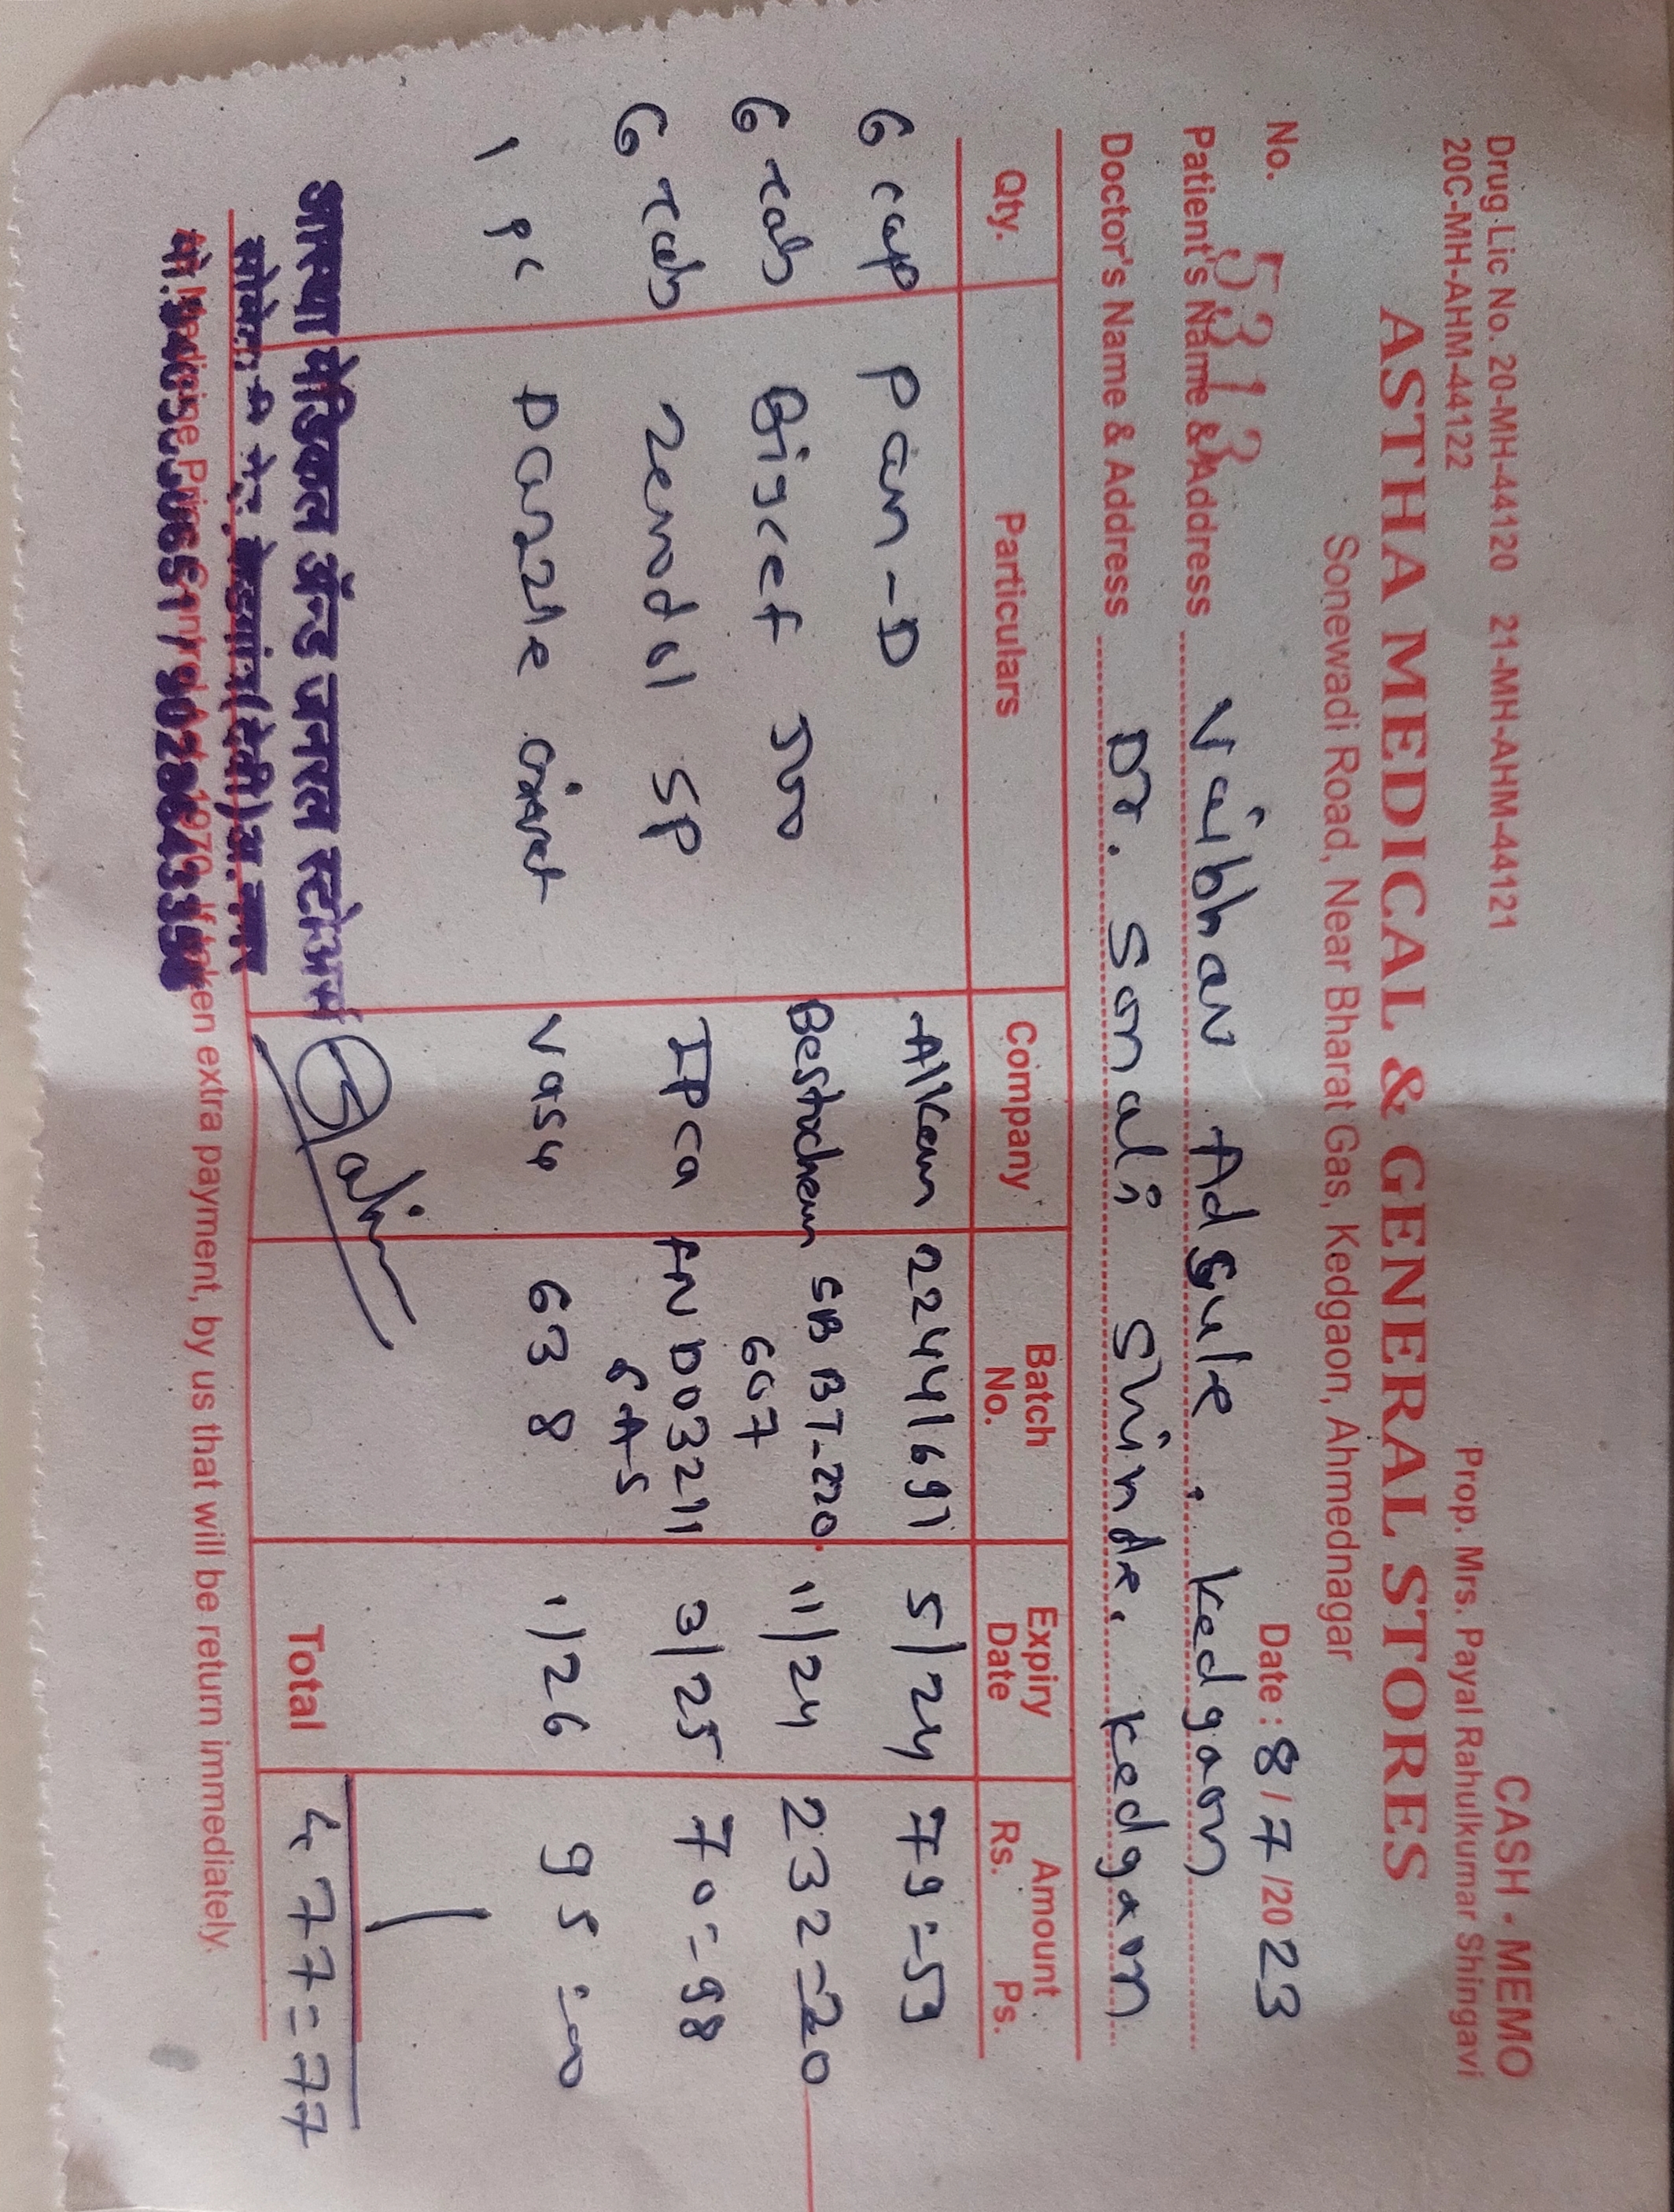 CASH - MEMO
Drug Lic No. 20-MH-44120 21-MH-AHM-44121
20C-MH-AHM-44122
Prop. Mrs. Payal Rahulkumar Shingavi
ASTHA MEDICAL & GENERAL STORES
Sonewadi Road, Near Bharat Gas, Kedgaon, Ahmednagar
No. 5313 Date : 8/7/2023
Patient's Name & Address Vaibhav Adsule. Kedgaon
Doctor's Name & Address Dr. Sonali Shinde. Kedgaon
Qty. Particulars Company Batch No. Expiry Date Amount Rs. Ps.
6 cap Pan-D Alkem 22441691 5/24 79=59
6 tab Bigcef 500 Bestochem SBBT-220 607 11/24 232=20
6 tab Zerodol SP IPca FND03211 6AS 3/25 70=98
1 pc Dazzle oint Vasu 638 1/26 95=00
Total 477=77
आस्था मेडिकल अॅन्ड जनरल स्टोअर्स
केडगांव (देवी) अ. नगर
As Medicine Price Control Act 1970, If taken extra payment, by us that will be return immediately.